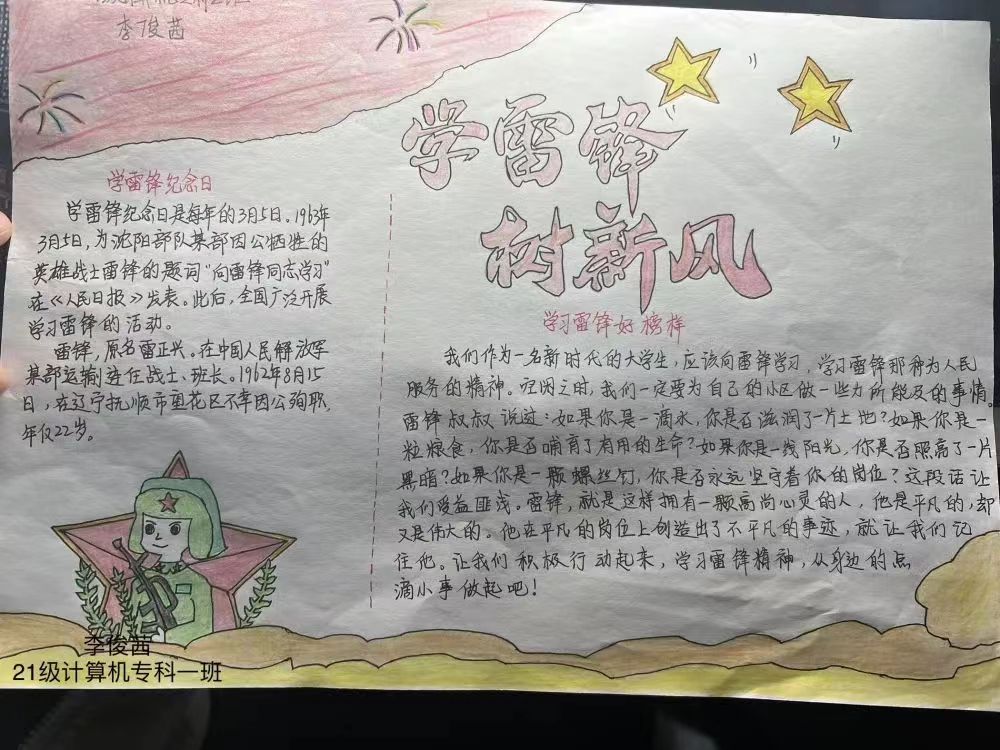 李俊茜
学雷锋
树新风
学雷锋纪念日
学雷锋纪念日是每年的3月5日。1963年
3月5日,为沈阳部队某部因公牺牲的
英雄战士雷锋的题词“向雷锋同志学习”
在《人民日报》发表。此后,全国广泛开展
学习雷锋的活动。
雷锋,原名雷正兴。在中国人民解放军
某部运输连任战士、班长。1962年8月15
日,在辽宁抚顺市望花区不幸因公殉职,
年仅22岁。
学习雷锋好榜样
我们作为一名新时代的大学生,应该向雷锋学习,学习雷锋那种为人民
服务的精神。空闲之时,我们一定要为自己的小区做一些力所能及的事情。
雷锋叔叔说过:如果你是一滴水,你是否滋润了一片土地?如果你是一
粒粮食,你是否哺育了有用的生命?如果你是一线阳光,你是否照亮了一片
黑暗?如果你是一颗螺丝钉,你是否永远坚守着你的岗位?这段话让
我们受益匪浅。雷锋,就是这样拥有一颗高尚心灵的人,他是平凡的,却
又是伟大的。他在平凡的岗位上创造出了不平凡的事迹,就让我们记
住他。让我们积极行动起来,学习雷锋精神,从身边的点
滴小事做起吧!
李俊茜
21级计算机专科一班